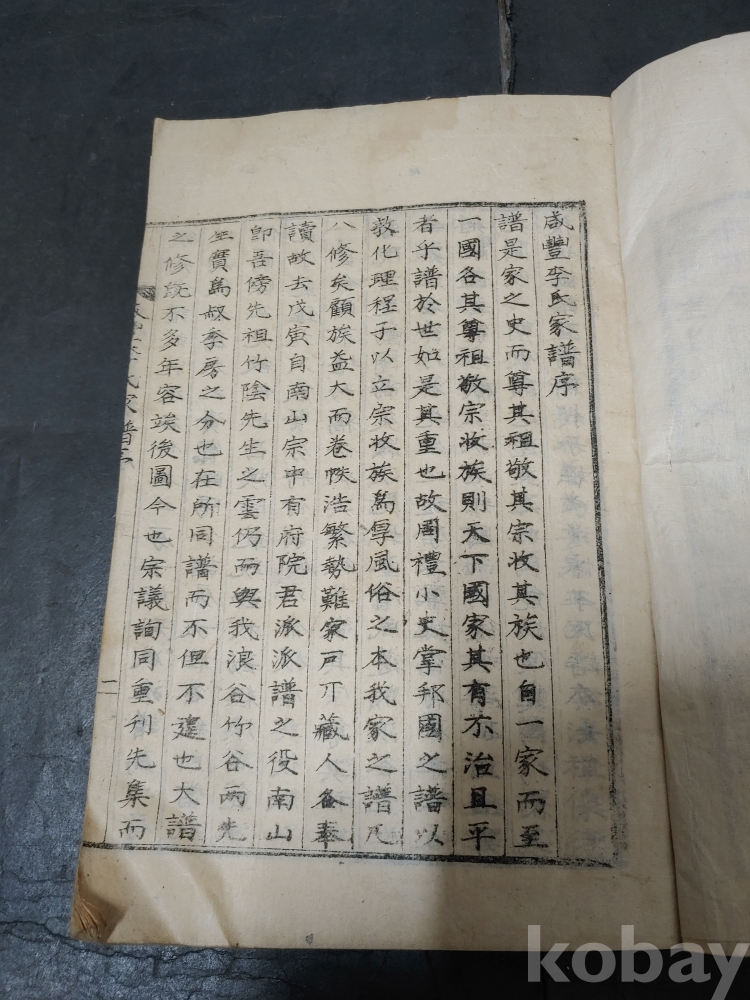 咸豐李氏家譜序
譜是家之史而尊其祖敬其宗收其族也自一家而至
一國各其尊祖敬宗收族則天下國家其有不治且平
者乎譜於世如是其重也故周禮小史掌邦國之譜以
敎化理程子以立宗收族爲厚風俗之本我家之譜凡
八修矣顧族益大而卷帙浩繁勢難家可藏人各奉
讀故去戊寅自南山宗中有府院君派派譜之役南山
卽吾傍先祖竹陰先生之雲仍而與我浪谷竹谷兩先
生實爲叔季房之分也在所同譜而不但不遑也大譜
之修旣不多年容竢後圖今也宗議詢同重刊先集而
氏家譜
二
kobay